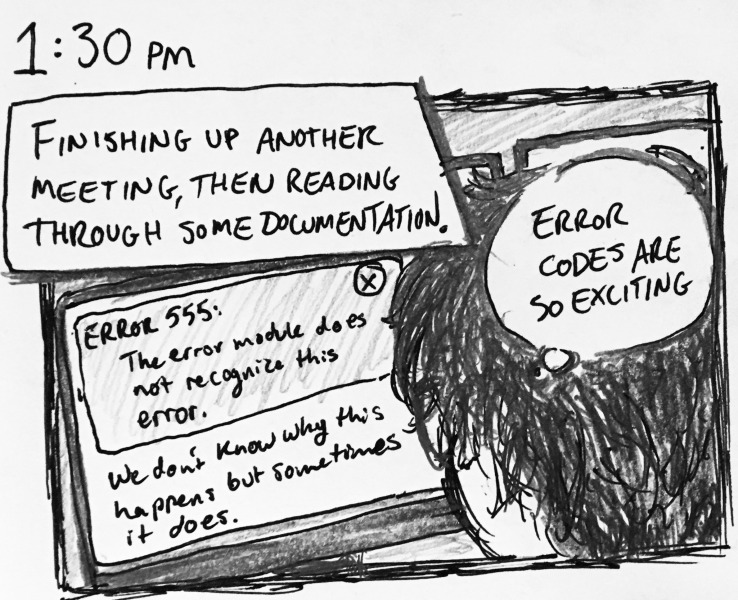 1:30 PM
FINISHING UP ANOTHER
MEETING, THEN READING
THROUGH SOME DOCUMENTATION.
ERROR
CODES ARE
SO EXCITING
ERROR 555:
The error module does
not recognize this
error.
We don't know why this
happens but sometimes
it does.